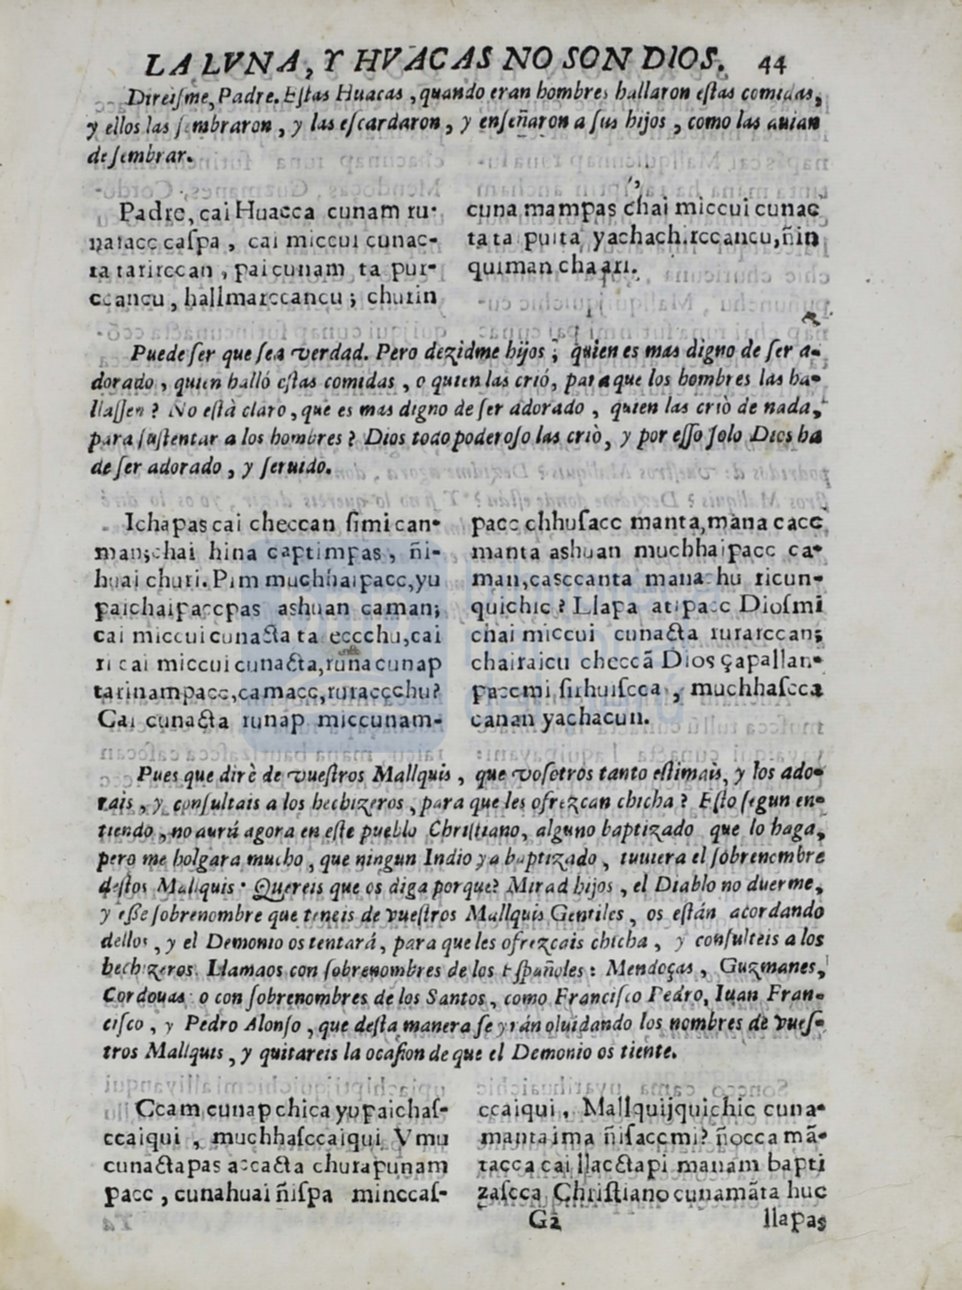 LA LVNA, Y HVACAS NO SON DIOS. 44
Direisme, Padre. Estas Huacas, quando eran hombres hallaron estas comidas,
y ellos las sembraron, y las escardaron, y enseñaron a sus hijos, como las auian
de sembrar.
Padre, cai Huacca cunam ru-
natacc caspa, cai miccui cunac-
ta tarirccan, pai cunam ta pur-
ccancu, hallmarccancu; churin
cuna mampas chai miccui cunac
ta ta puita yachachirccancu, ñin
quiman chaari.
Puede ser que sea verdad. Pero dezidme hijos; quien es mas digno de ser a-
dorado, quien halló estas comidas, o quien las crió, para que los hombres las ha-
llassen? No està claro, que es mas digno de ser adorado, quien las criò de nada,
para sustentar a los hombres? Dios todopoderoso las criò, y por esso solo Dios ha
de ser adorado, y seruido.
Ichapas cai checcan simi can-
man; chai hina captimpas, ñi-
huai churi. Pim muchhaipacc, yu
paichaipaccpas ashuan caman;
cai miccui cunacta ta ecccchu, cai
ri cai miccui cunacta, runacunap
tarinampacc, camacc, ruraccchu?
Cai cunacta runap miccunam-
pacc chhusacc manta, mana cacc
manta ashuan muchhaipacc ca-
man, casccanta manachu ricun-
quichic? Llapa atipacc Diosmi
chai miccui cunacta rurarccan;
chairaicu checcã Dios çapallan-
paccmi sirhuiscca, muchhascca
canan yachacun.
Pues que dirè de vuestros Mallquis, que vosotros tanto estimais, y los ado-
rais, y consultais a los hechizeros, para que les ofrezcan chicha? Esto segun en-
tiendo, no aurá agora en este pueblo Christiano, alguno baptizado que lo haga,
pero me holgara mucho, que ningun Indio ya baptizado, tuuiera el sobrenombre
destos Mallquis. Quereis que os diga porque? Mirad hijos, el Diablo no duerme,
y esse sobrenombre que teneis de vuestros Mallquis Gentiles, os están acordando
dellos, y el Demonio os tentará, para que les ofrezcais chicha, y consulteis a los
hechizeros. Llamaos con sobrenombres de los Españoles: Mendoças, Guzmanes,
Cordouas o con sobrenombres de los Santos, como Francisco Pedro, Iuan Fran-
cisco, y Pedro Alonso, que desta manera se yrán oluidando los nombres de vues-
tros Mallquis, y quitareis la ocasion de que el Demonio os tiente.
Ccam cunap chica yupaichas-
ccaiqui, muchhasccaiqui Vmu
cunactapas accacta churapunam
pacc, cunahuai ñispa minccas-
ccaiqui, Mallquijquichic cuna-
manta ima ñisaccmi? ñocca mã-
tacca cai llacctapi manam bapti
zascca Christiano cunamãta huc
G2 llapas